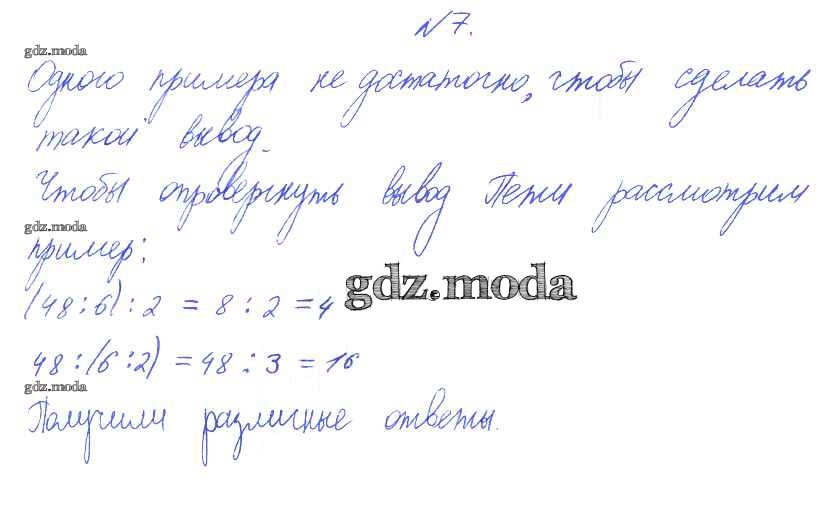 №7.
gdz.moda
Одного примера не достаточно, чтобы сделать
такой вывод.
Чтобы опровергнуть вывод Пети рассмотрим
gdz.moda
пример:
gdz.moda
(48:6):2 = 8:2 = 4
48:(6:2) = 48:3 = 16
gdz.moda
Получили различные ответы.